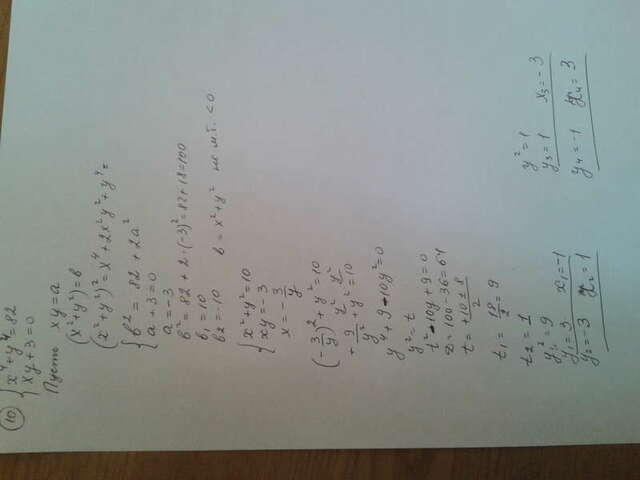 10) { x⁴+y⁴=82
{ xy+3=0
Пусть xy=a
(x²+y²)=в
(x²+y²)²=x⁴+2x²y²+y⁴=
{ в²=82+2a²
{ a+3=0
a=-3
в²=82+2·(-3)²=82+18=100
в₁=10
в₂=-10 в=x²+y² не м.б. <0
{ x²+y²=10
{ xy=-3
x=-3/y
(-3/y)²+y²=10
+ 9/y²+y²=10
y⁴+9-10y²=0
y²=t
t²-10y+9=0
D=100-36=64
t=+10±8/2
t₁=18/2=9
t₂=1
y²=9
y₁=3 x₁=-1
y₂=-3 x₂=1
y²=1
y₃=1 x₃=-3
y₄=-1 x₄=3